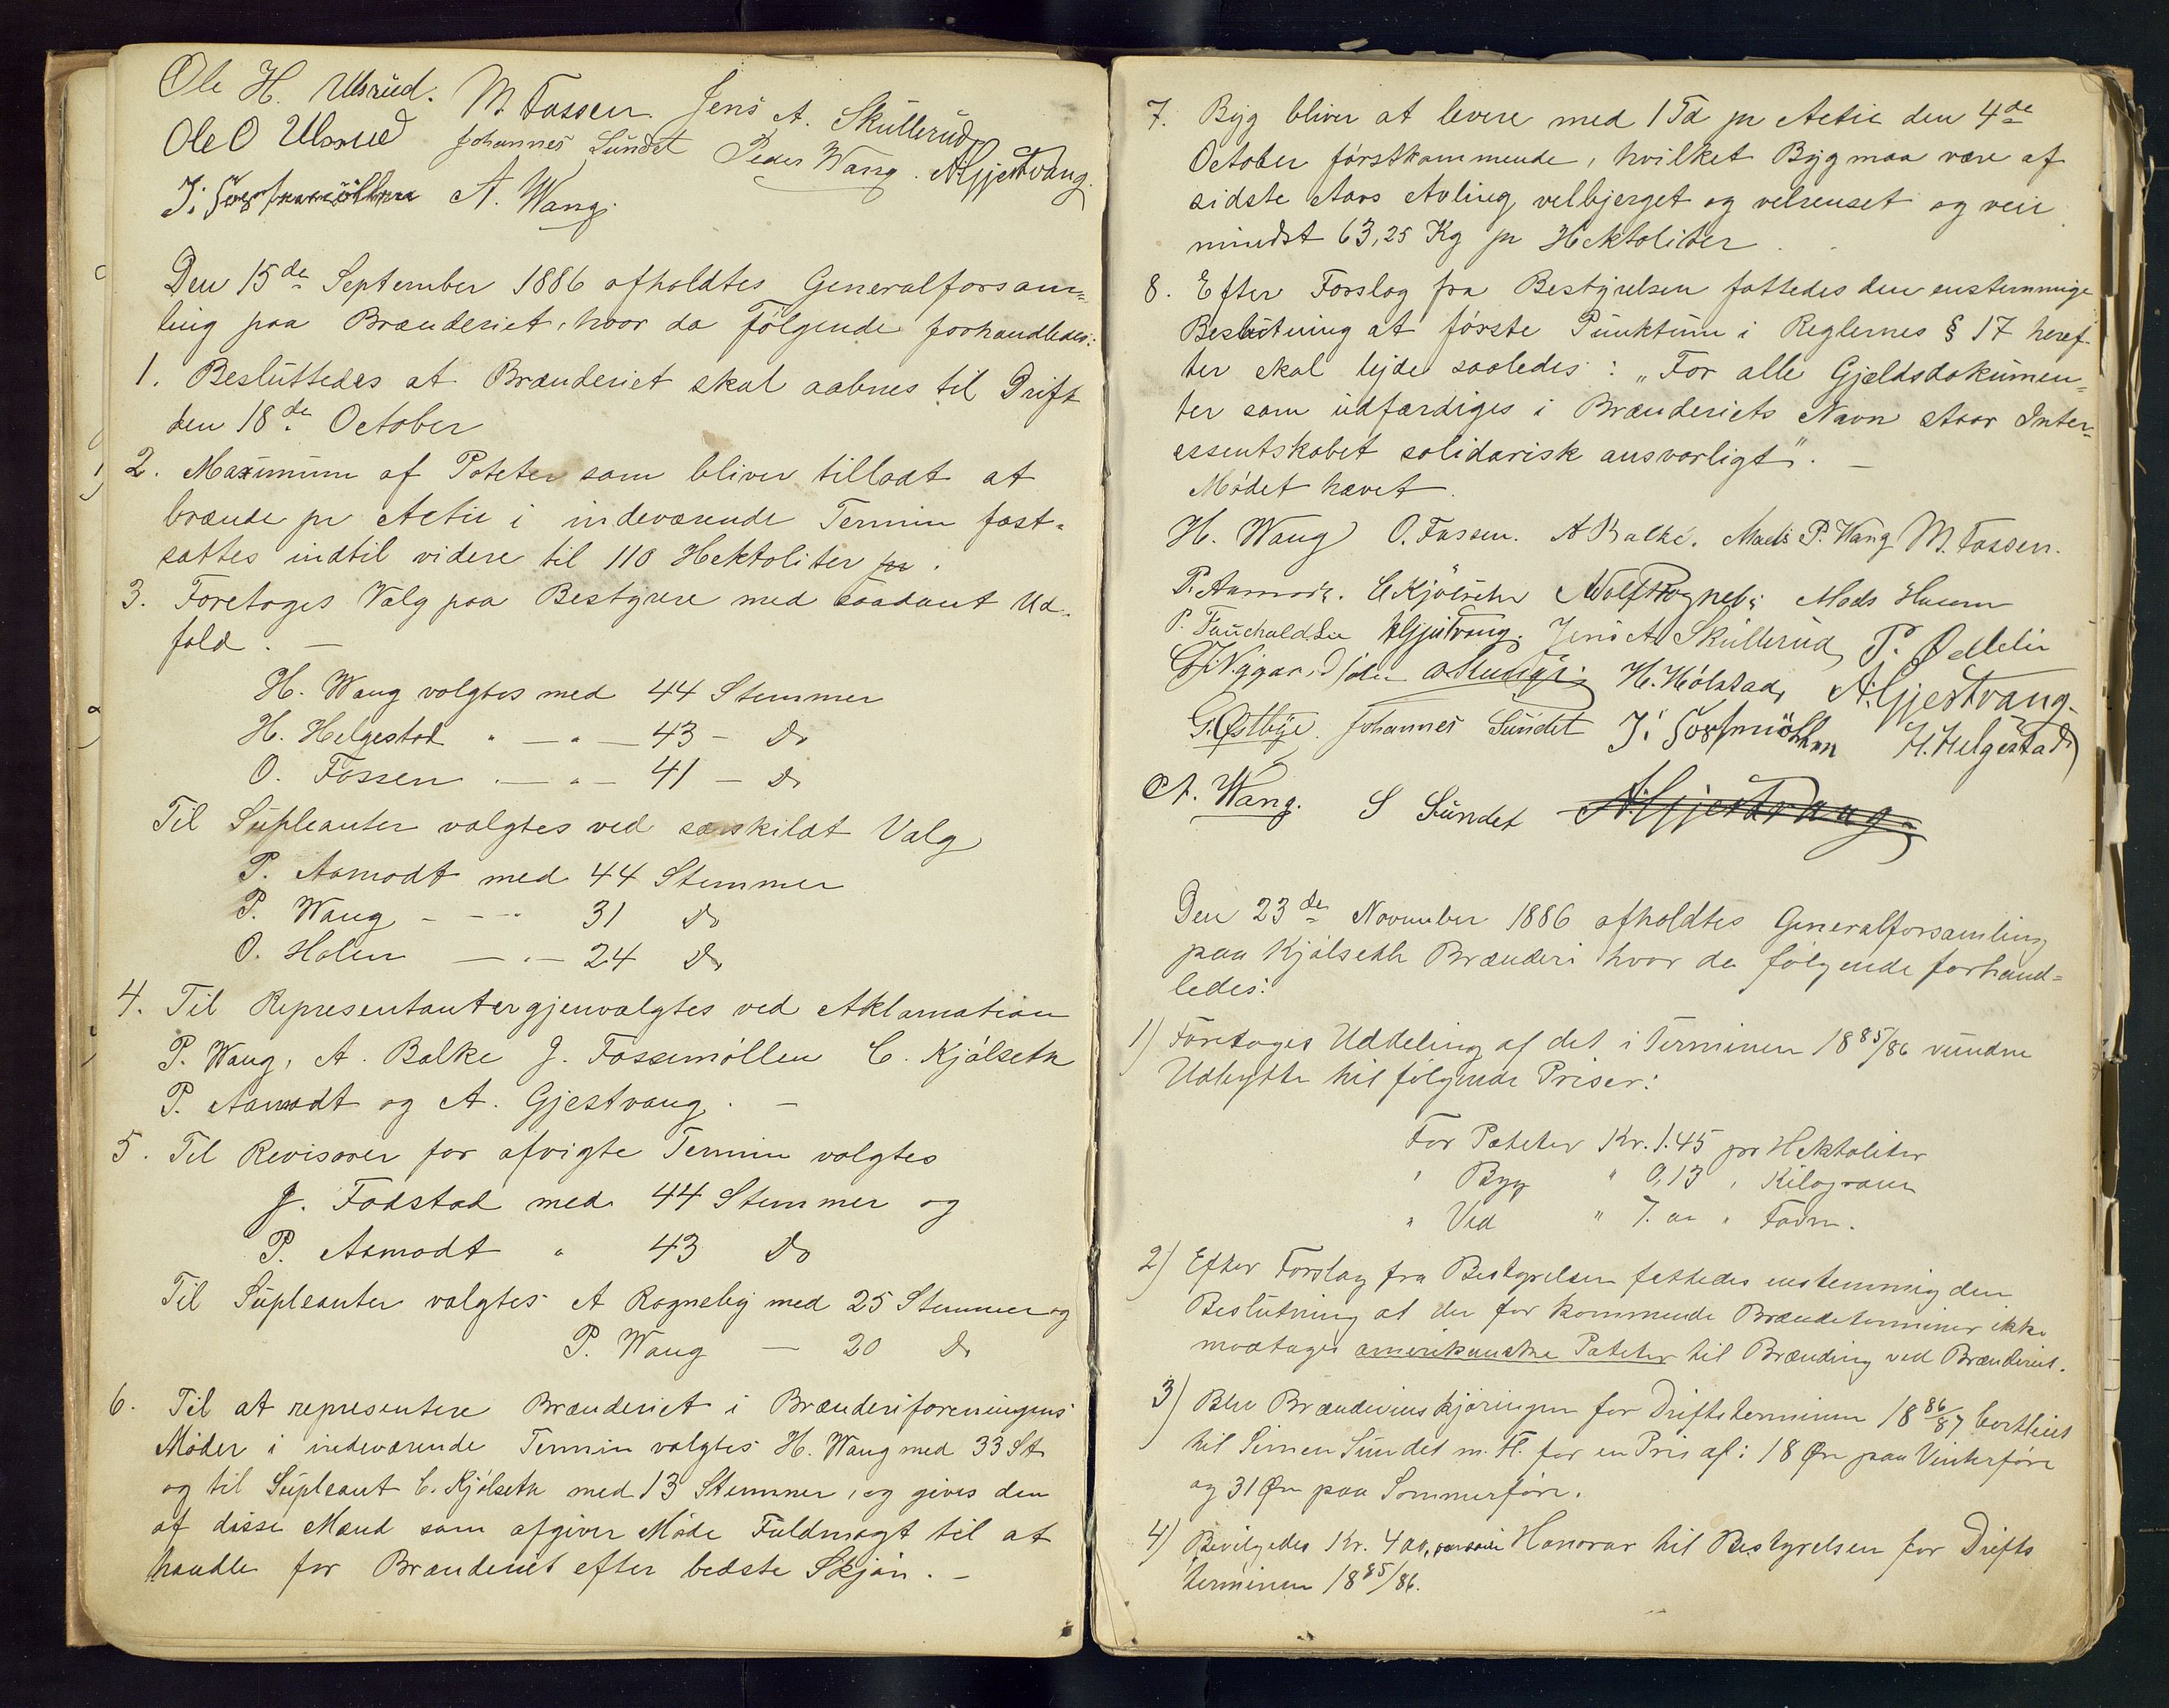 Ole H. Ulsrud. M. Fossen. Jens A. Skullerud
Ole O Ulsrud Johannes Sundet Peder Wang. A Gjestvang.
J. Fossemöllen A. Wang.
Den 15de September 1886 afholdtes Generalforsam=
ling paa Brænderiet, hvor da følgende forhandledes:
1. Besluttedes at Brænderiet skal aabnes til Drift
den 18de October
2. Maximum af Poteter som bliver tilladt at
brænde pr Actie i indeværende Termin fast=
sattes indtil videre til 110 Hektoliter pr.
3. Foretoges Valg paa Bestyrere med saadant Ud=
fald. —
H. Wang valgtes med 44 Stemmer
H. Helgestad " — " — 43 — Do
O. Fossen — " — 41 — Do
Til Supleanter valgtes ved særskildt Valg
P. Aamodt med 44 Stemmer
P. Wang - - - 31 Do
O. Holen — " — 24 Do
4. Til Representanter gjenvalgtes ved Aklamation
P. Wang, A. Balke J. Fossemøllen C. Kjølseth
P. Aamodt og A. Gjestvang. —
5. Til Revisorer for afvigte Termin valgtes
J. Fodstad med 44 Stemmer og
P. Aamodt " 43 Do
Til Supleanter valgtes A Rognebj med 25 Stemmer og
P. Wang — 20 Do
6. Til at representere Brænderiet i Brænderiforeningens
Møder i indeværende Termin valgtes H. Wang med 33 St
og til Supleant C. Kjølseth med 13 Stemmer, og gives den
af disse Mænd som afgiver Møde Fuldmagt til at
handle for Brænderiet efter bedste Skjøn. —
7. Byg bliver at levere med 1 Td pr Actie den 4de
October førstkommende, hvilket Byg maa være af
sidste Aars Avling velbjerget og velrenset og veie
mindst 63,25 Kg pr Hektoliter.
8. Efter Forslag fra Bestyrelsen fattedes den enstemmige
Beslutning at første Punktum i Reglernes § 17 heref=
ter skal lyde saaledes: "For alle Gjældsdokumen=
ter som udfærdiges i Brænderiets Navn staar Inter=
essentskabet solidarisk ansvarligt". —
Mødet hævet.
H. Wang O. Fossen. A Balke. Mads P. Wang M. Fossen.
P. Aamodt. C Kjölseth Mads Husum
P. Fauchald A Gjestvang. Jens A Skullerud
H. Hölstad, A. Gjestvang.
G. Østbye. Johannes Sundet J. Fossmöllen H. Helgestad
A. Wang. S Sundet A. Gjestvang
Den 23de November 1886 afholdtes Generalforsamling
paa Kjølseth Brænderi hvor da følgende forhand=
ledes:
1) Foretoges Uddeling af det i Terminen 1885/86 vundne
Udbytte til følgende Priser:
For Poteter Kr. 1.45 pr Hektoliter
" Byg " 0,13 " Kilogram
" Ved " 7.00 " Favn.
2) Efter Forslag fra Bestyrelsen fattedes enstemmig den
Beslutning at der for kommende Brændeterminer ikke
modtages amerikanske Poteter til Brænding ved Brænderiet.
3) Blev Brændevinskjøringen for Driftsterminen 1886/87 bortleiet
til Simen Sundet m. fl. for en Pris af: 18 Øre paa Vinterføre
og 31 Øre paa Sommerføre.
4) Bevilgedes Kr. 400, Honorar til Bestyrelsen for Drifts
terminen 1885/86.